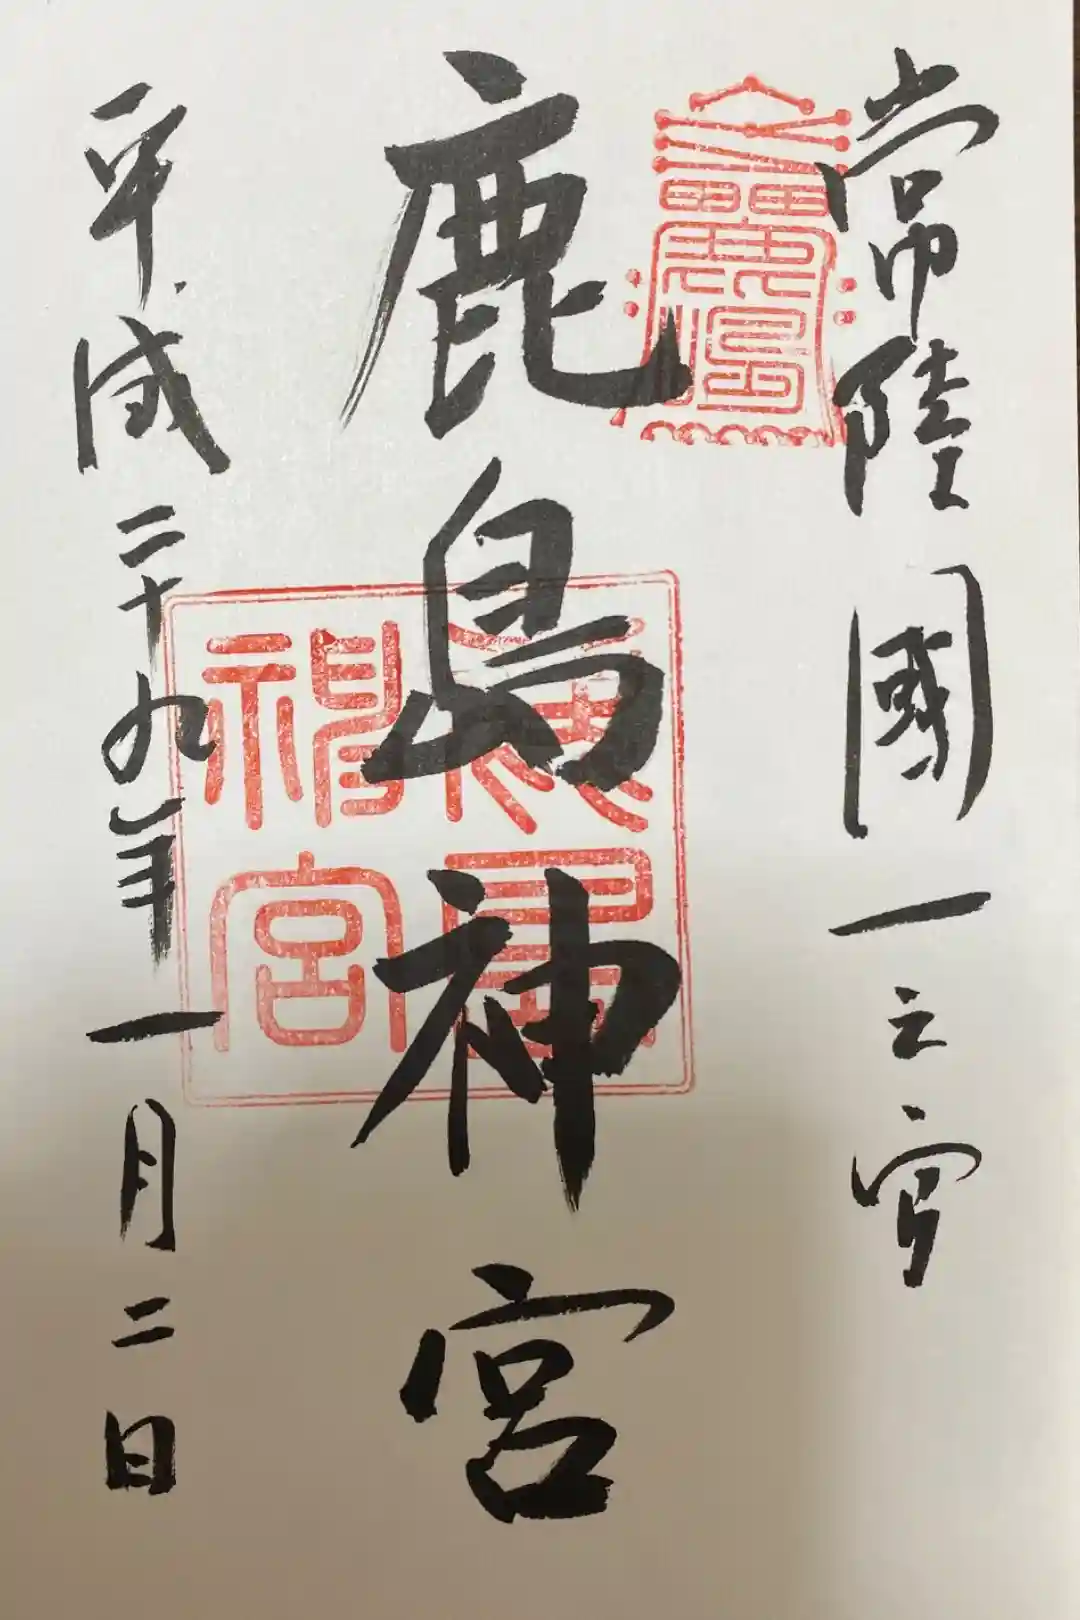 常陸國一之宮
鹿島神宮
鹿島
神宮
平成二十九年一月二日